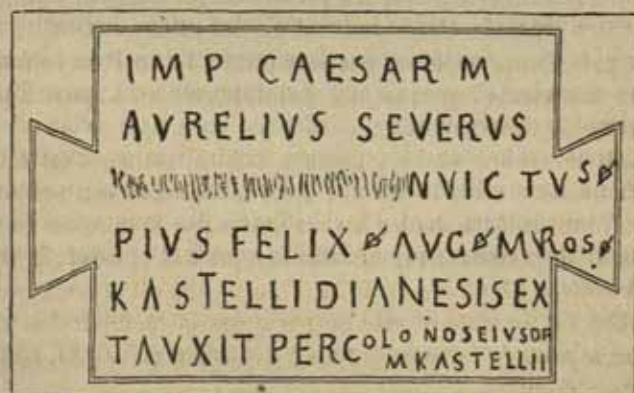 IMP CAESAR M
AVRELIVS SEVERVS
NVICTVS
PIVS FELIX AVG MVROS
KASTELLIDIANESISEX
TAVXIT PERCOLONOSEIVSDE
MKASTELLII